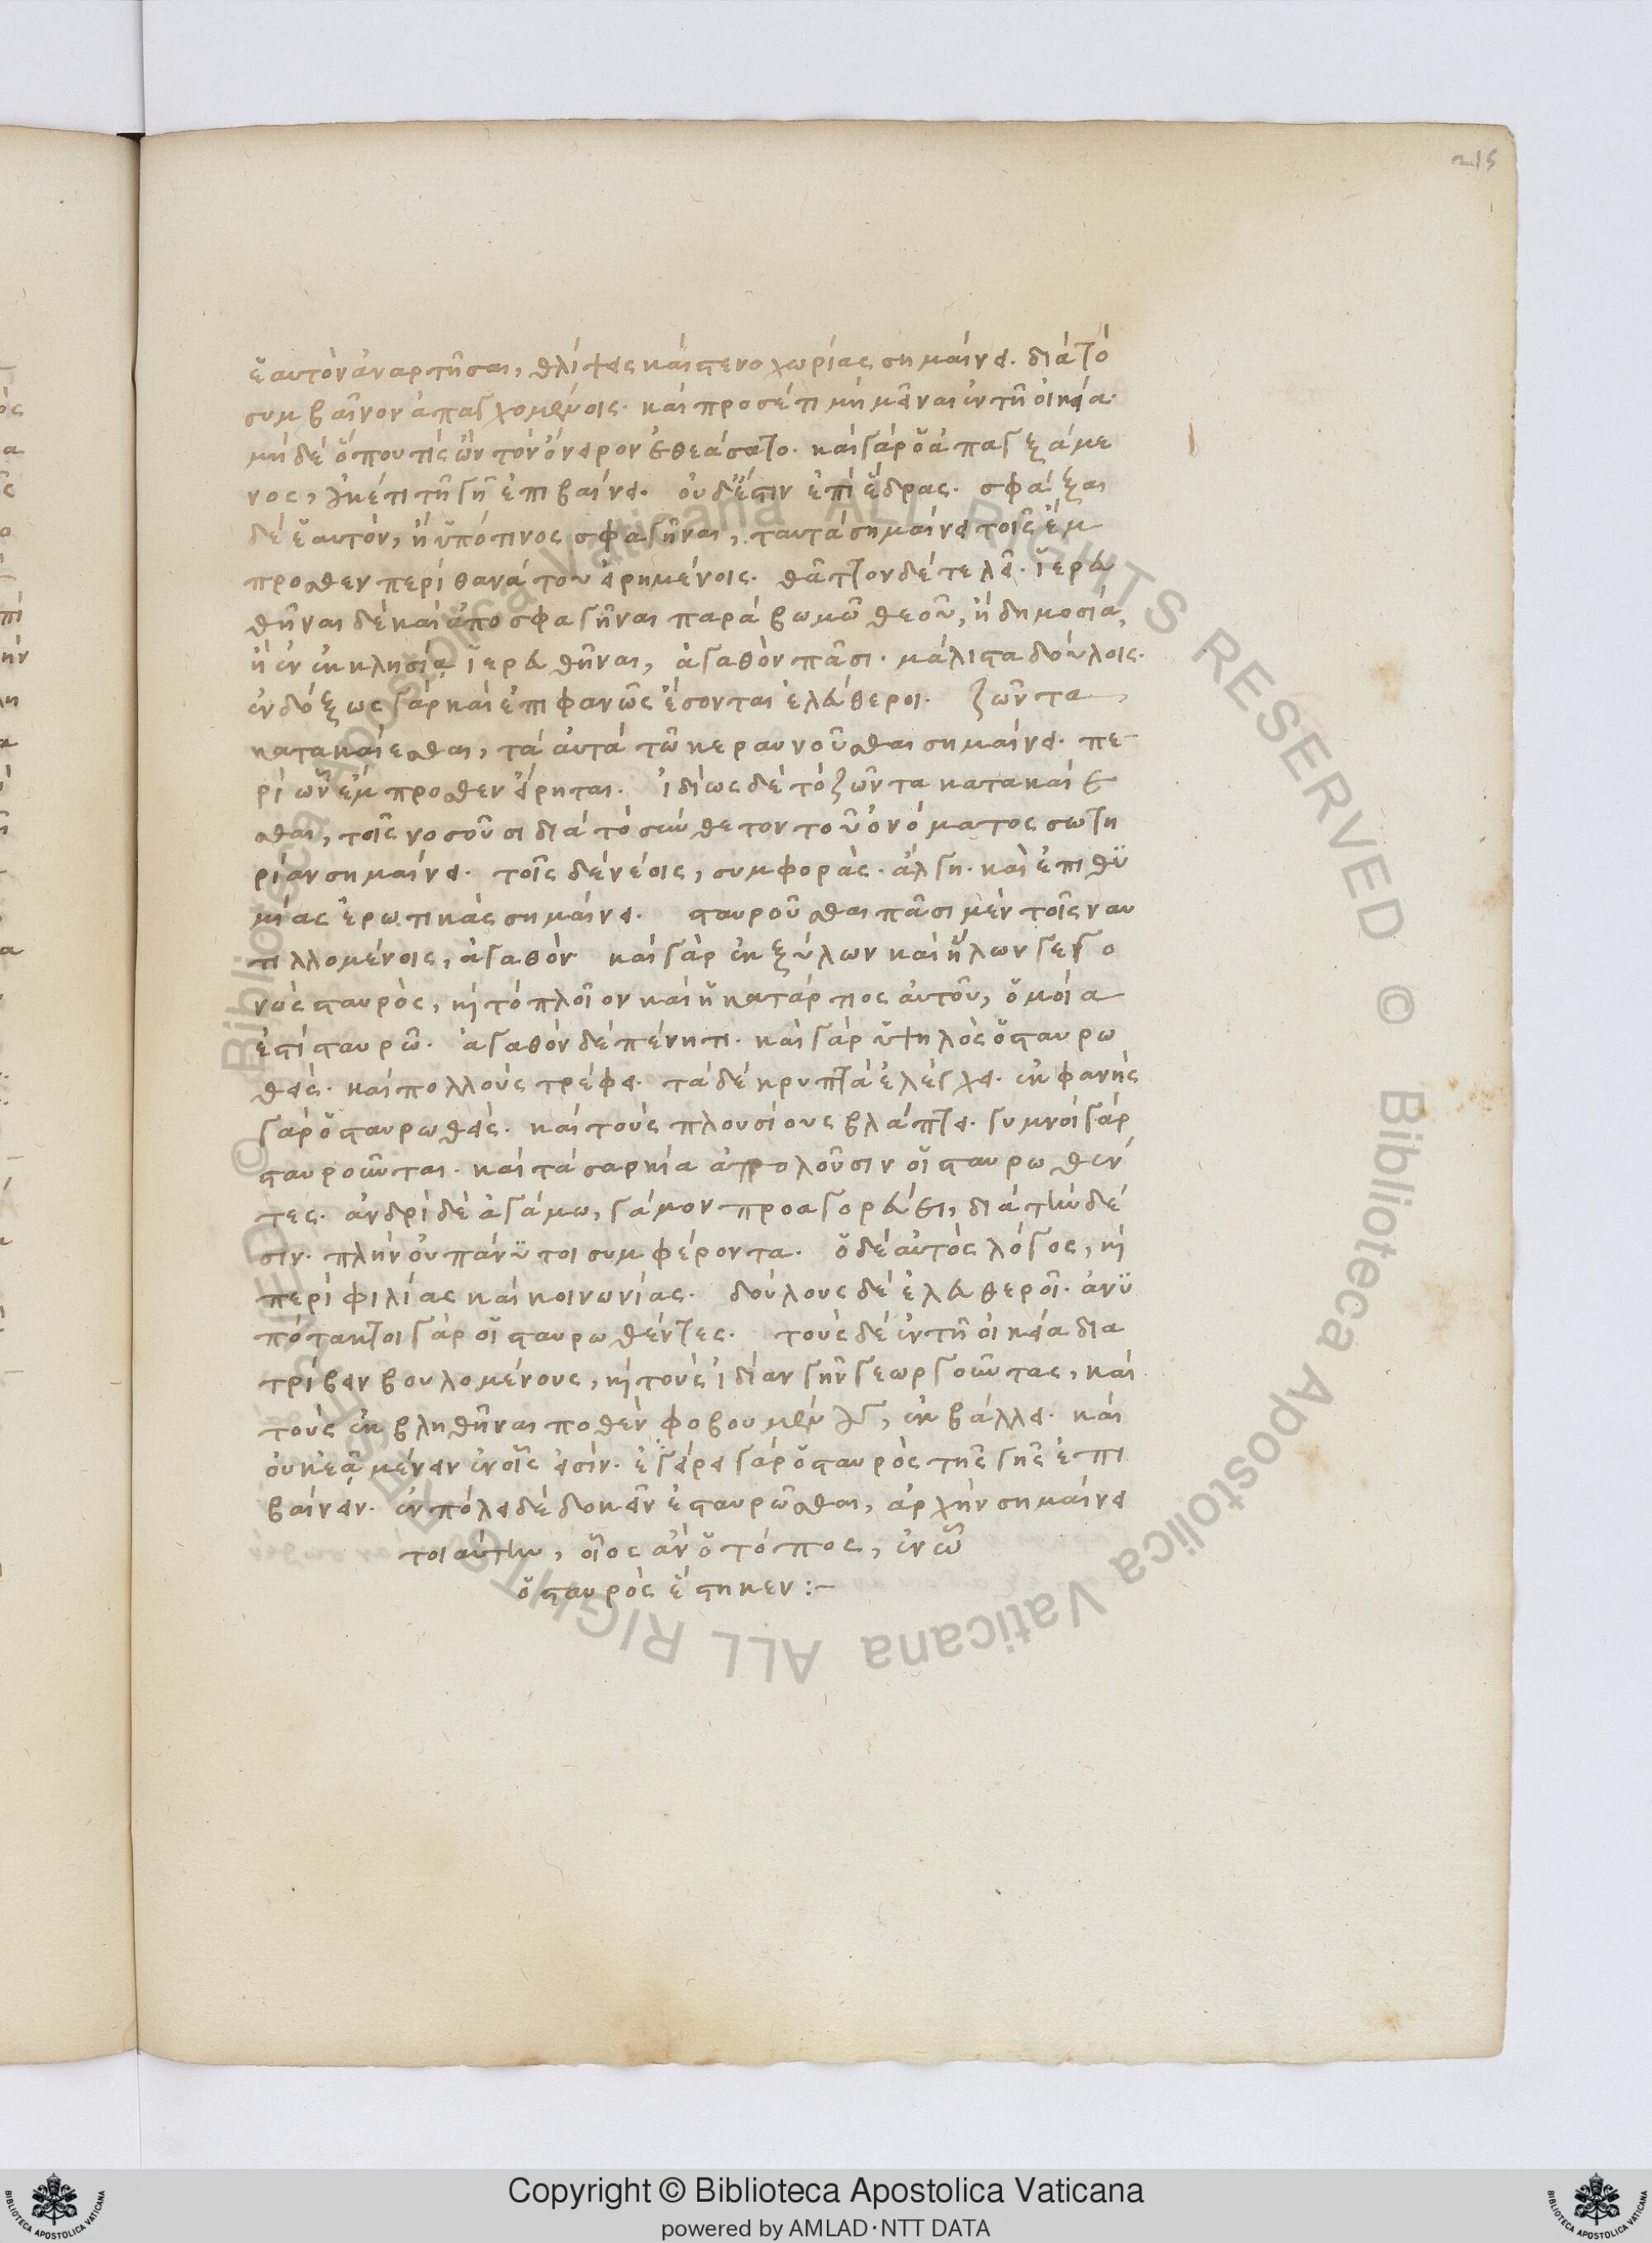 215
ἑαυτὸν ἀναρτῆσαι, θλίψεις καὶ στενοχωρίας σημαίνει. διὰ τὸ
συμβαῖνον ἀπαγχομένοις. καὶ προσέτι μὴ μεῖναι ἐν τῇ οἰκεία.
μὴ δὲ ὅπου τίς ὢν τὸν ὄνειρον ἐθεάσατο. καὶ γὰρ ὁ ἀπαγξάμε
νος, οὐκέτι τῇ γῇ ἐπιβαίνει. οὐδέ ἐστιν ἐπὶ ἕδρας. σφάξαι
δὲ ἑαυτὸν, ἢ ὑπό τινος σφαγῆναι, ταυτὰ σημαίνει τοῖς ἔμ
προσθεν περὶ θανάτου εἰρημένοις. θᾶττον δὲ τελεῖ. ἱερευ
θῆναι δὲ καὶ ἀποσφαγῆναι παρὰ βωμῶ θεοῦ, ἢ δημοσία,
ἢ ἐν ἐκκλησίᾳ ἱερευθῆναι, ἀγαθὸν πᾶσι. μάλιστα δούλοις.
ἐνδόξως γὰρ καὶ ἐπιφανῶς ἔσονται ἐλεύθεροι. ζῶντα
κατακαίεσθαι, τὰ αὐτὰ τῶ κεραυνοῦσθαι σημαίνει. πε
ρὶ ὧν ἔμπροσθεν εἴρητα. ἰδίως δὲ τὸ ζῶντα κατακαίε
σθαι, τοῖς νοσοῦσι διὰ τὸ σύνθετον τοῦ ὀνόματος σωτη
ρίαν σημαίνει. τοῖς δὲ νέοις, συμφορὰς. ἄλγη. καὶ ἐπιθυ
μίας ἐρωτικὰς σημαίνει. σταυροῦσθαι πᾶσι μὲν τοῖς ναυ
τιλλομένοις, ἀγαθόν καὶ γὰρ ἐκ ξύλων καὶ ἥλων γέγο
νὼς σταυρὸς, ὡς τὸ πλοῖον καὶ ἡ κατάρτιος αὐτοῦ, ὁμοία
ἐστὶ σταυρῶ. ἀγαθὸν δὲ πένητι. καὶ γὰρ ὑψηλὸς ὁ σταυρω
θείς. καὶ πολλοὺς τρέφει. τὰ δὲ κρυπτὰ ἐλέγχει. ἐκφανὴς
γὰρ ὁ σταυρωθείς. καὶ τοὺς πλουσίους βλάπτει. γυμνοὶ γὰρ
σταυροῦνται. καὶ τὰ σαρκία ἀπολοῦσιν οἱ σταυρωθέν
τες. ἀνδρὶ δὲ ἀγάμω, γάμον προαγορεύει, διὰ τὴν δέ
σιν. πλὴν οὐ πάνυ τοι συμφέροντα. ὁ δὲ αὐτὸς λόγος, καὶ
περὶ φιλίας καὶ κοινωνίας. δούλους δὲ ἐλευθεροῖ. ἀνυ
πότακτοι γὰρ οἱ σταυρωθέντες. τοὺς δὲ ἐν τῇ οἰκεία δια
τρίβειν βουλομένους, καὶ τοὺς ἰδίαν γῆν γεωργοῦντας, καὶ
τοὺς ἐκβληθῆναι ποθὲν φοβουμένους, ἐκβάλλει. καὶ
οὐκ ἐᾷ μένειν ἐν οἷς εἰσίν. ἐγείρει γὰρ ὁ σταυρὸς τῆς γῆς ἐπι
βαίνειν. ἐν πόλει δὲ δοκεῖν ἐσταυρῶσθαι, ἀρχὴν σημαίνει
τοιαύτην, οἷος ἂν ὁ τόπος, ἐν ὧ
ὁ σταυρὸς ἕστηκεν :-
© Biblioteca Apostolica Vaticana ALL RIGHTS RESERVED
Copyright © Biblioteca Apostolica Vaticana
powered by AMLAD·NTT DATA